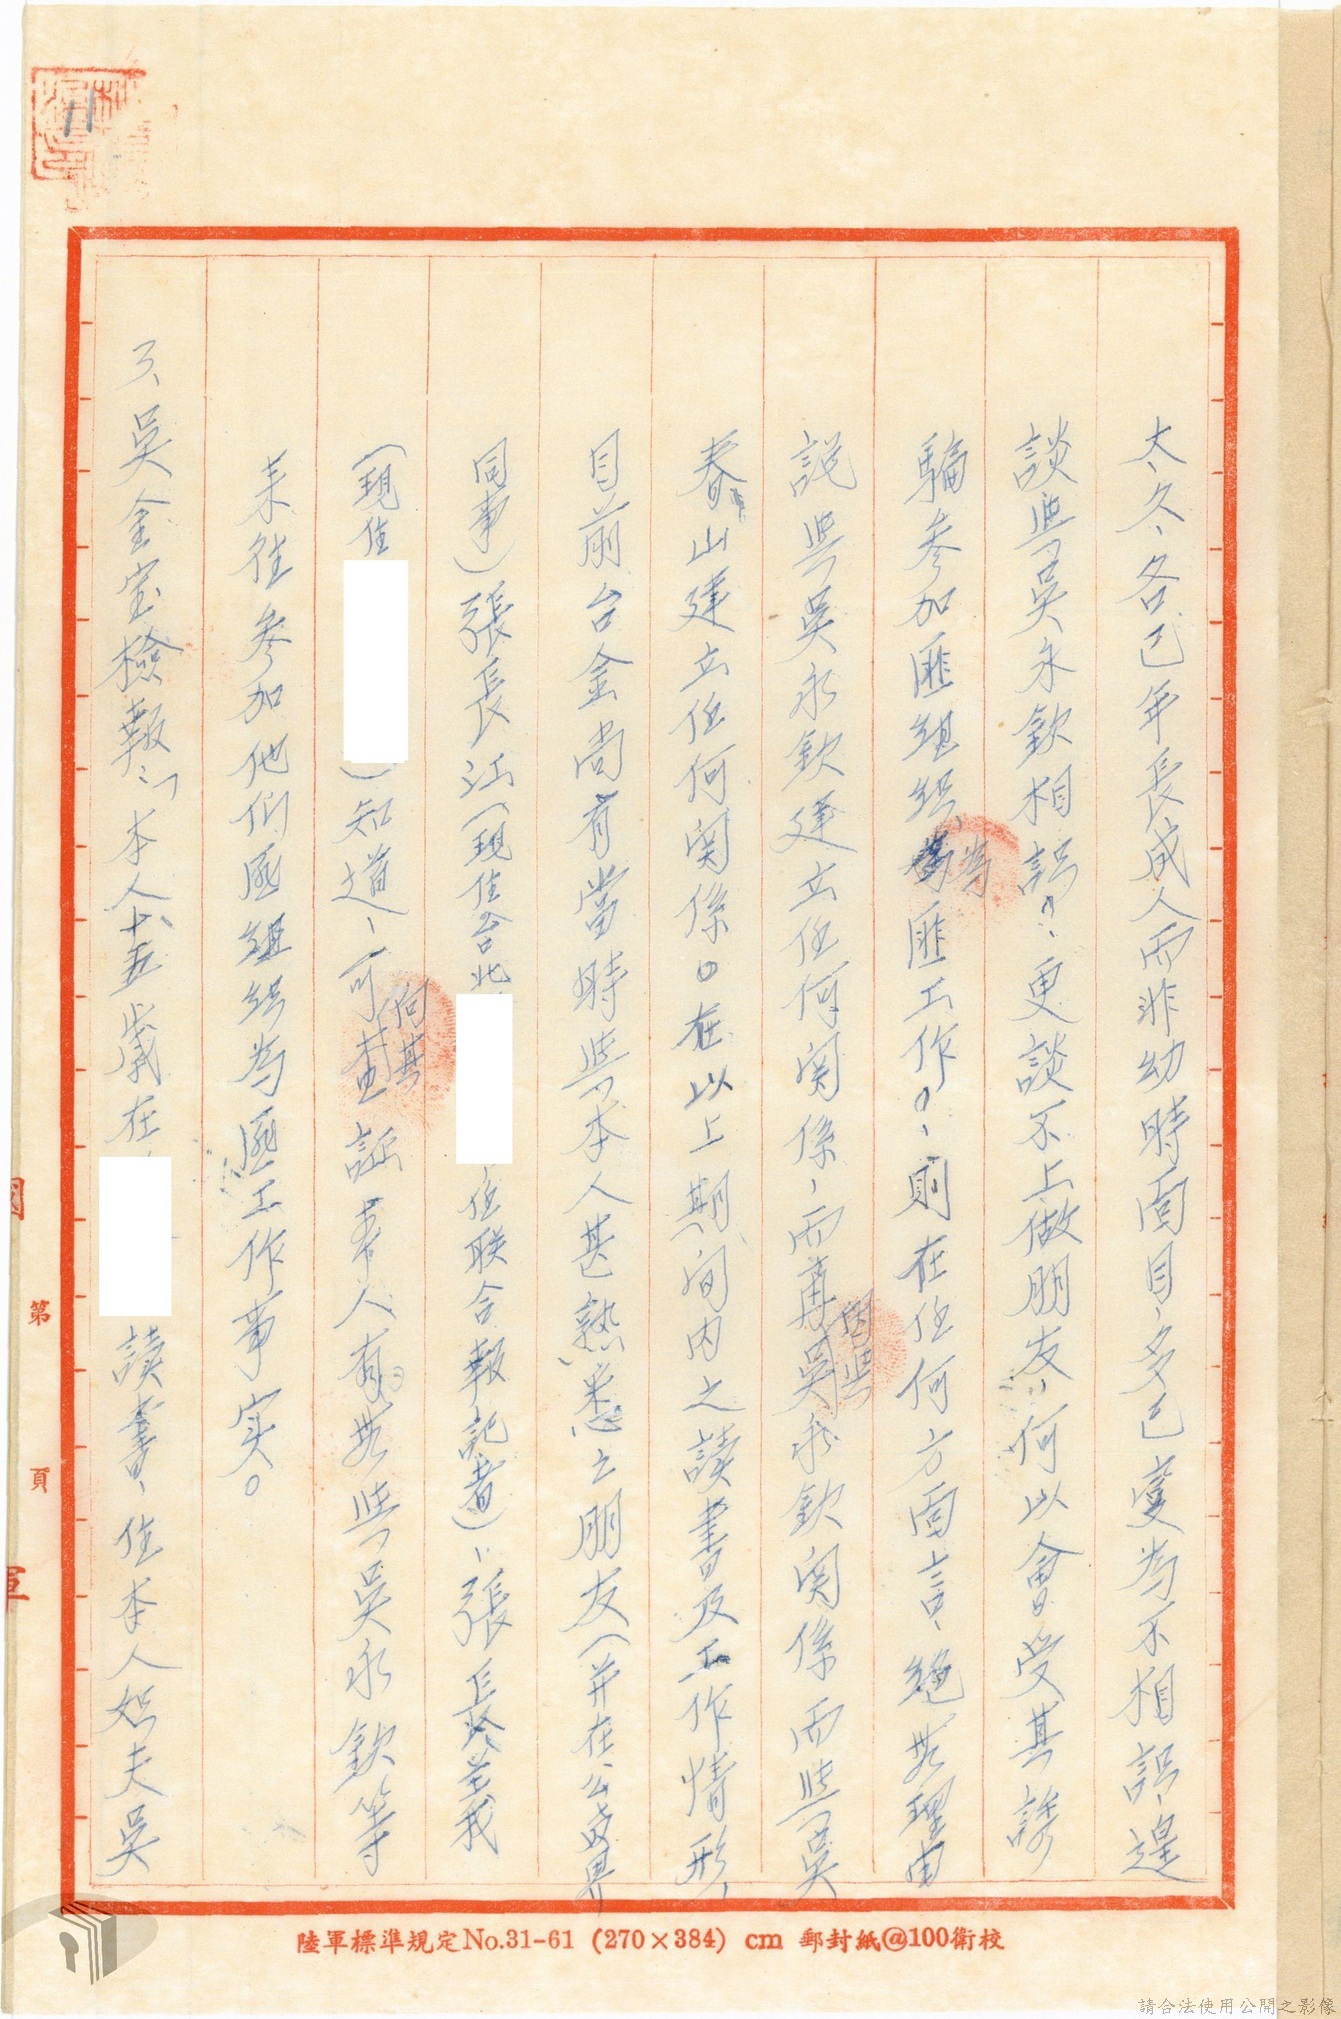 太久、各已年長成人而非幼時面目、多已變為不相認、遑
談與吳永欽相認?、更談不上做朋友、何以會受其誘
騙參加匪組織為匪工作?、則在任何方面言、絕無理由
說與吳永欽建立任何関係、而再因與吳永欽関係而與吳
春山建立任何関係。在以上期間內之讀書及工作情形、
目前台金尚有當時與本人甚熟悉之朋友(并在公營界
同事)張長江(現住台北 任联合報記者)、張長 並我
(現住 )知道、可向其查証本人有無與吳永欽等
来往參加他们匪組织為匪工作事实。
3、吳金宝檢報:「本人十五歲在 讀書、住本人姐夫吳
11
第 頁
陸軍標準規定No.31-61 (270×384) cm 郵封紙@100衛校
請合法使用公開之影像